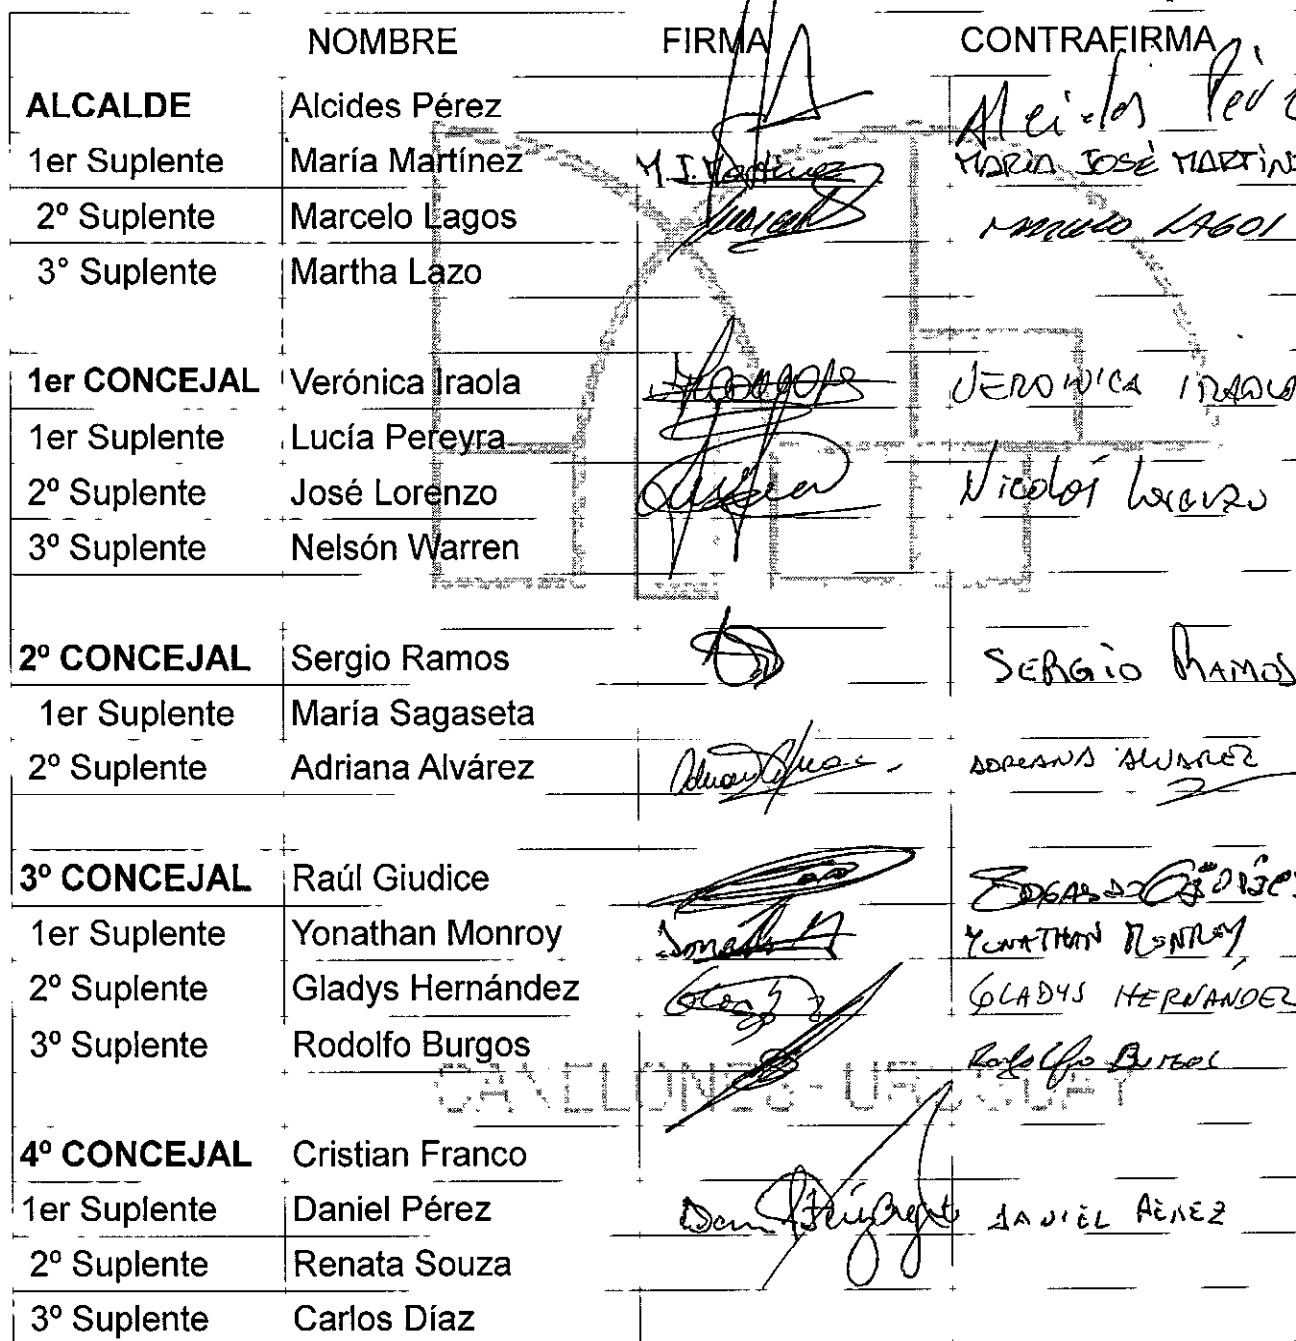 NOMBRE FIRMA CONTRAFIRMA
ALCALDE Alcides Pérez Alcides
1er Suplente María Martínez M.J. Martínez MARÍA JOSÉ MARTÍN
2º Suplente Marcelo Lagos LAGOS
3° Suplente Martha Lazo
1er CONCEJAL Verónica Iraola VERONICA IRAOLA
1er Suplente Lucía Pereyra
2º Suplente José Lorenzo Nicolás Lorenzo
3º Suplente Nelsón Warren
2º CONCEJAL Sergio Ramos SERGIO RAMOS
1er Suplente María Sagaseta
2º Suplente Adriana Alvárez ADRIANA ALVAREZ
3º CONCEJAL Raúl Giudice
1er Suplente Yonathan Monroy YONATHAN MONROY
2º Suplente Gladys Hernández GLADYS HERNANDEZ
3º Suplente Rodolfo Burgos Rodolfo Burgos
CANELONES - URUGUAY
4º CONCEJAL Cristian Franco
1er Suplente Daniel Pérez DANIEL PÉREZ
2º Suplente Renata Souza
3º Suplente Carlos Díaz